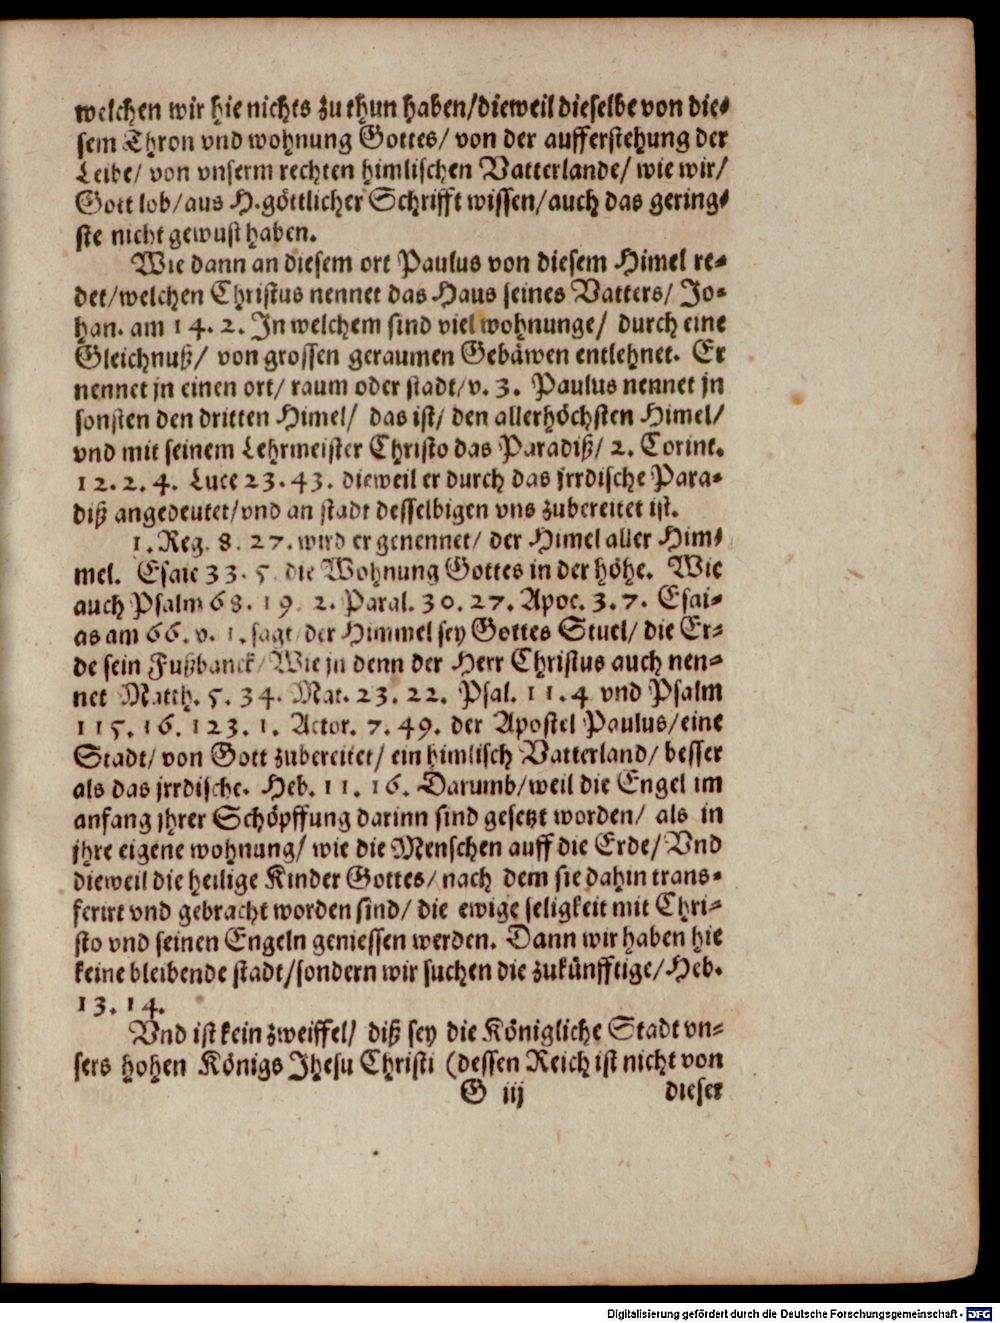 welchen wir hie nichts zu thun haben/dieweil dieselbe von die⸗
sem Thron vnd wohnung Gottes/ von der aufferstehung der
Leibe/ von vnserm rechten himlischen Vatterlande/ wie wir/
Gott lob/aus H.göttlicher Schrifft wissen/auch das gering⸗
ste nicht gewust haben.
Wie dann an diesem ort Paulus von diesem Himel re⸗
det/welchen Christus nennet das Haus seines Vatters/ Jo⸗
han. am 14. 2. In welchem sind viel wohnunge/ durch eine
Gleichnuß/ von grossen geraumen Gebäwen entlehnet. Er
nennet jn einen ort/ raum oder stadt/v. 3. Paulus nennet jn
sonsten den dritten Himel/ das ist/ den allerhöchsten Himel/
vnd mit seinem Lehrmeister Christo das Paradiß/ 2. Corint.
12. 2. 4. Luce 23. 43. dieweil er durch das jrrdische Para⸗
diß angedeutet/vnd an stadt desselbigen vns zubereitet ist.
1. Reg. 8. 27. wird er genennet/ der Himel aller Him⸗
mel. Esaie 33. 5 die Wohnung Gottes in der höhe. Wie
auch Psalm 68. 19. 2. Paral. 30. 27. Apoc. 3. 7. Esai⸗
as am 66. v. 1. sagt/der Himmel sey Gottes Stuel/ die Er⸗
de sein Fußbanck/Wie jn denn der Herr Christus auch nen⸗
net Matth. 5. 34. Mat. 23. 22. Psal. 11. 4 vnd Psalm
115. 16. 123. 1. Actor. 7. 49. der Apostel Paulus/eine
Stadt/ von Gott zubereitet/ ein himlisch Vatterland/ besser
als das jrrdische. Heb. 11. 16. Darumb/weil die Engel im
anfang jhrer Schöpffung darinn sind gesetzt worden/ als in
jhre eigene wohnung/ wie die Menschen auff die Erde/ Vnd
dieweil die heilige Kinder Gottes/ nach dem sie dahin trans⸗
ferirt vnd gebracht worden sind/ die ewige seligkeit mit Chri⸗
sto vnd seinen Engeln geniessen werden. Dann wir haben hie
keine bleibende stadt/sondern wir suchen die zukünfftige/Heb.
13. 14.
Vnd ist kein zweiffel/ diß sey die Königliche Stadt vn⸗
sers hohen Königs Jhesu Christi (dessen Reich ist nicht von
G iij dieser
Digitalisierung gefördert durch die Deutsche Forschungsgemeinschaft - DFG